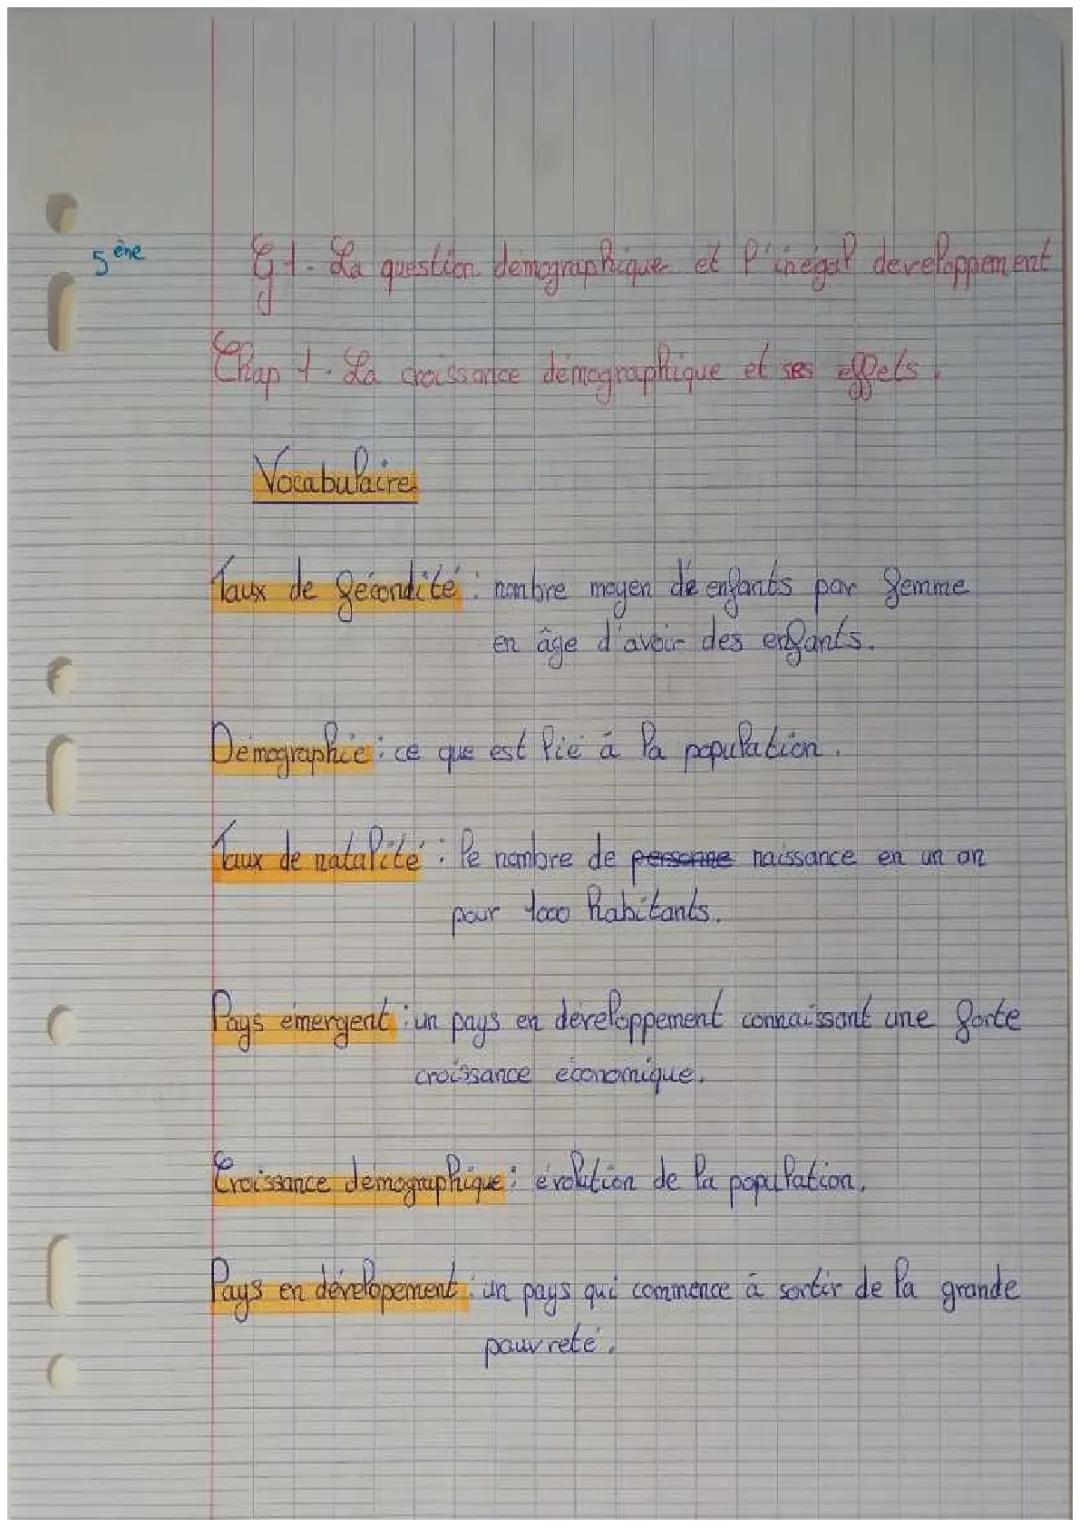 5ème
G1 - La question démographique et l'inégal developpement
Chap 1 - La croissance démographique et ses effets.
Vocabulaire
Taux de fécondité : nombre moyen de enfants par femme
en âge d'avoir des enfants.
Démographie : ce que est lié à la population.
Taux de natalité : le nombre de personne naissance en un an
pour 1000 habitants.
Pays émergent : un pays en développement connaissant une forte
croissance économique.
Croissance démographique : évolution de la population.
Pays en dévelopement : un pays qui commence à sortir de la grande
pauvreté.